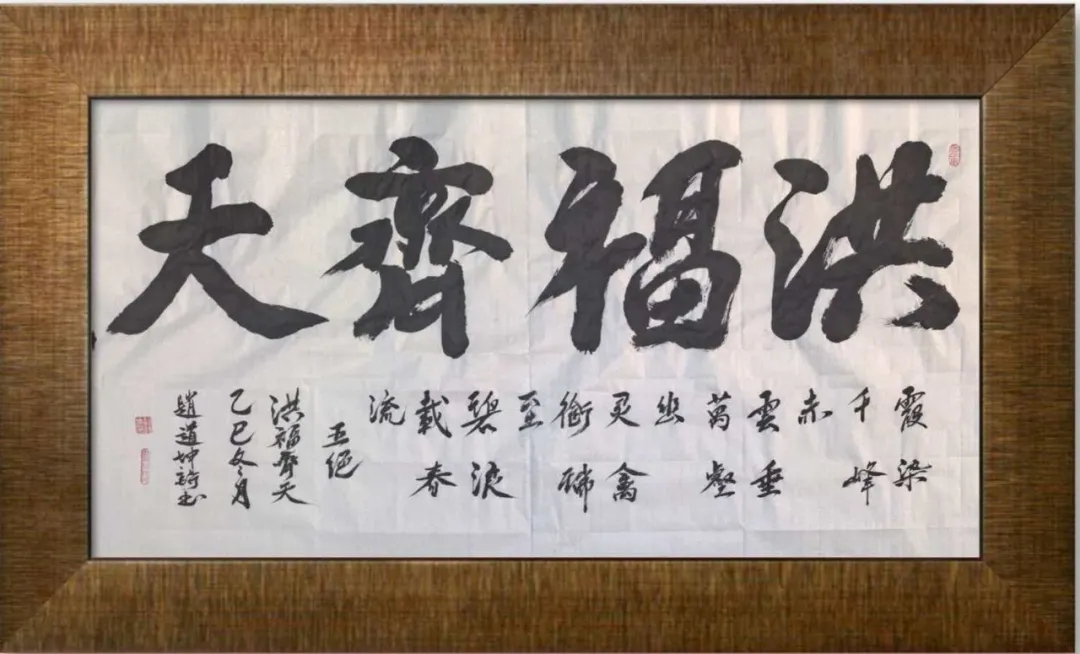 洪福齊天
霞染
千峰
赤
雲垂
萬壑
幽
灵禽
銜
至
碧浪
載春
流
五絕
洪福齊天
乙巳冬月
趙道坤詩书